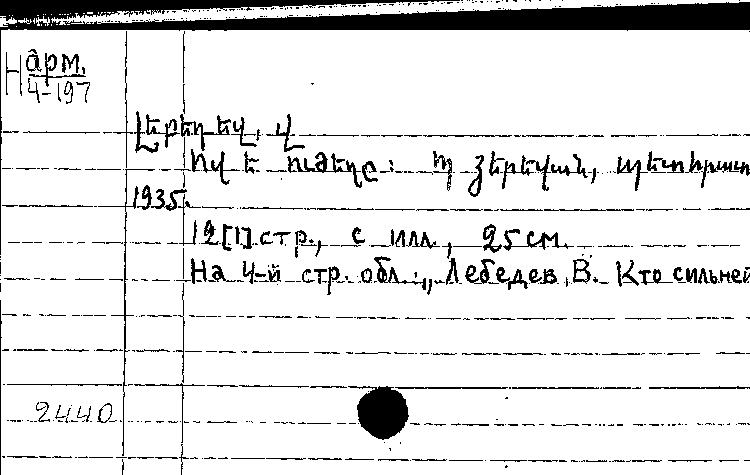 Н арм.
4-197
Լեբեդեվ, Վ
Ով է ուժեղը: Յերեվան, պետհրատ
1935.
12[1] стр., с илл., 25 см.
На 4-й стр. обл.: „Лебедев, В. Кто сильней
2440